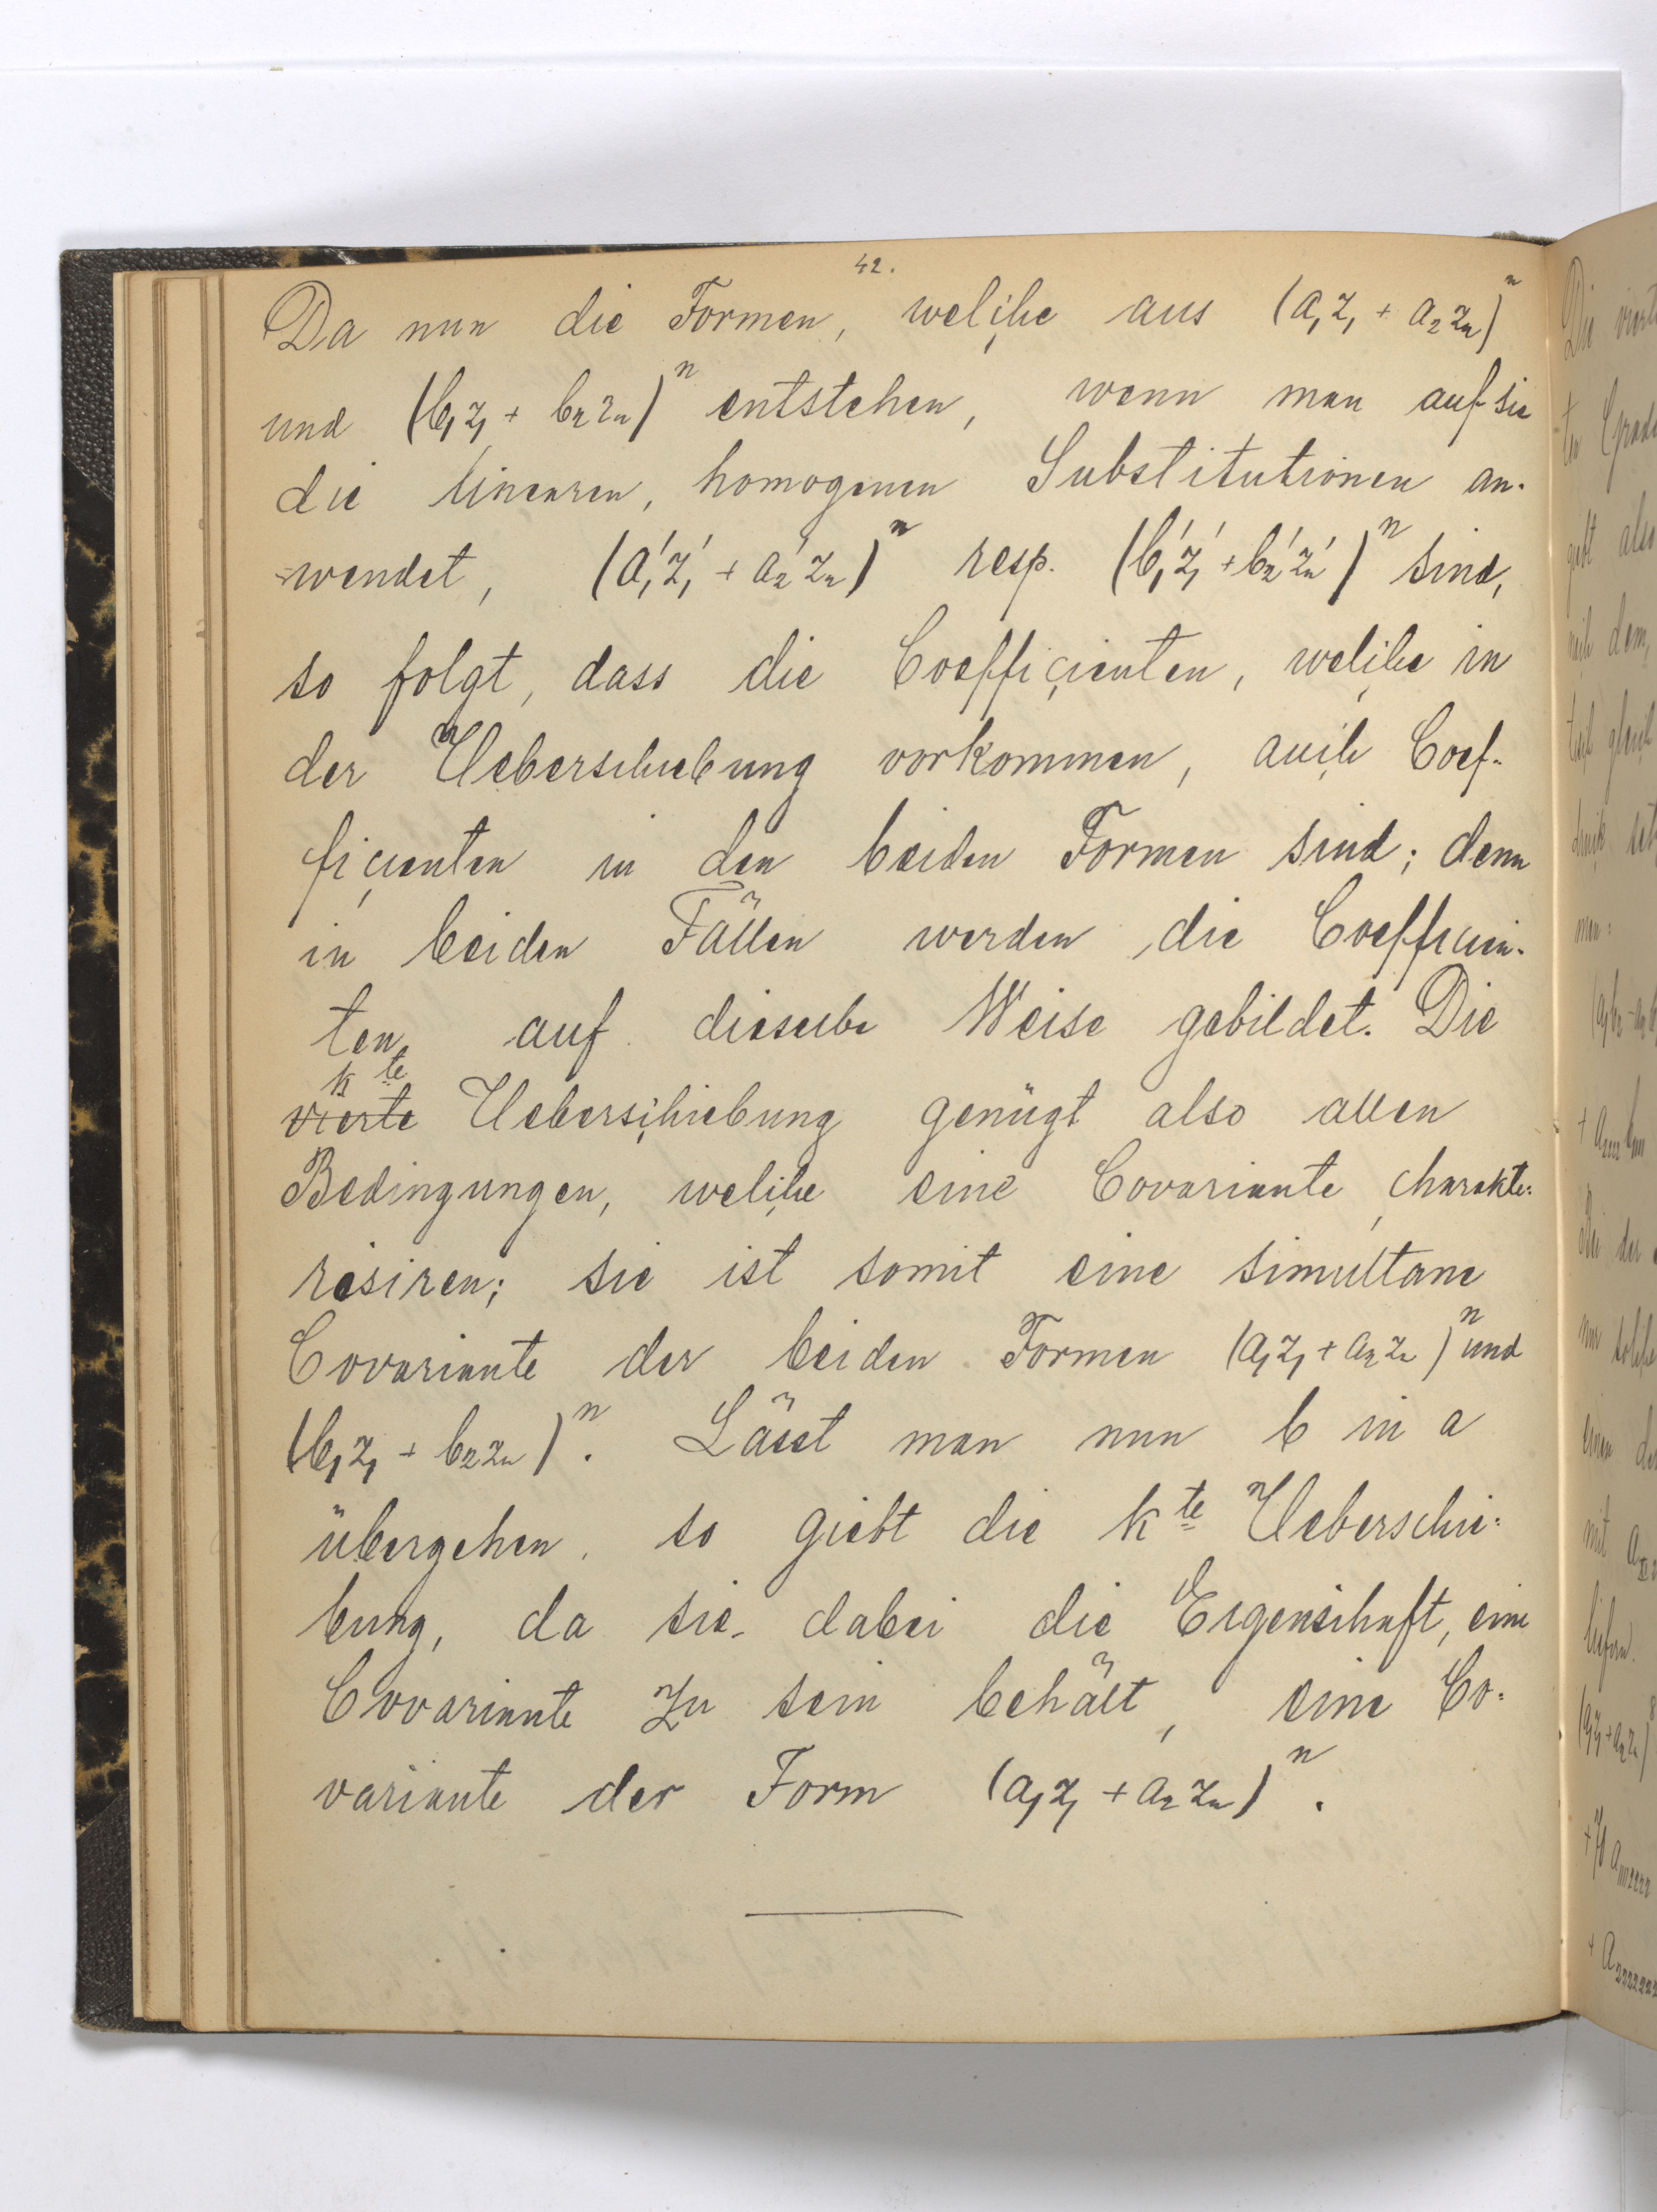 42.
Da nun die Formen, welche aus (a₁z₁ + a₂z₂)ⁿ
und (b₁z₁ + b₂z₂)ⁿ entstehen, wenn man auf sie
die linearen, homogenen Substitutionen an-
=wendet, (a₁'z₁' + a₂'z₂)ⁿ resp. (b₁'z₁' + b₂'z₂')ⁿ sind,
so folgt, dass die Coefficienten, welche in
der Ueberschiebung vorkommen, auch Coef-
ficienten in den beiden Formen sind; denn
in beiden Fällen werden die Coefficien-
ten auf dieselbe Weise gebildet. Die
k te
vierte Ueberschiebung genügt also allen
Bedingungen, welche eine Covariante charakte=
risiren; sie ist somit eine simultane
Covariante der beiden Formen (a₁z₁ + a₂z₂)ⁿ und
(b₁z₁ + b₂z₂)ⁿ. Lässt man nun b in a
übergehen, so giebt die k te Ueberschie=
bung, da sie dabei die Eigenschaft, eine
Covariante zu sein behält, eine Co=
variante der Form (a₁z₁ + a₂z₂)ⁿ.